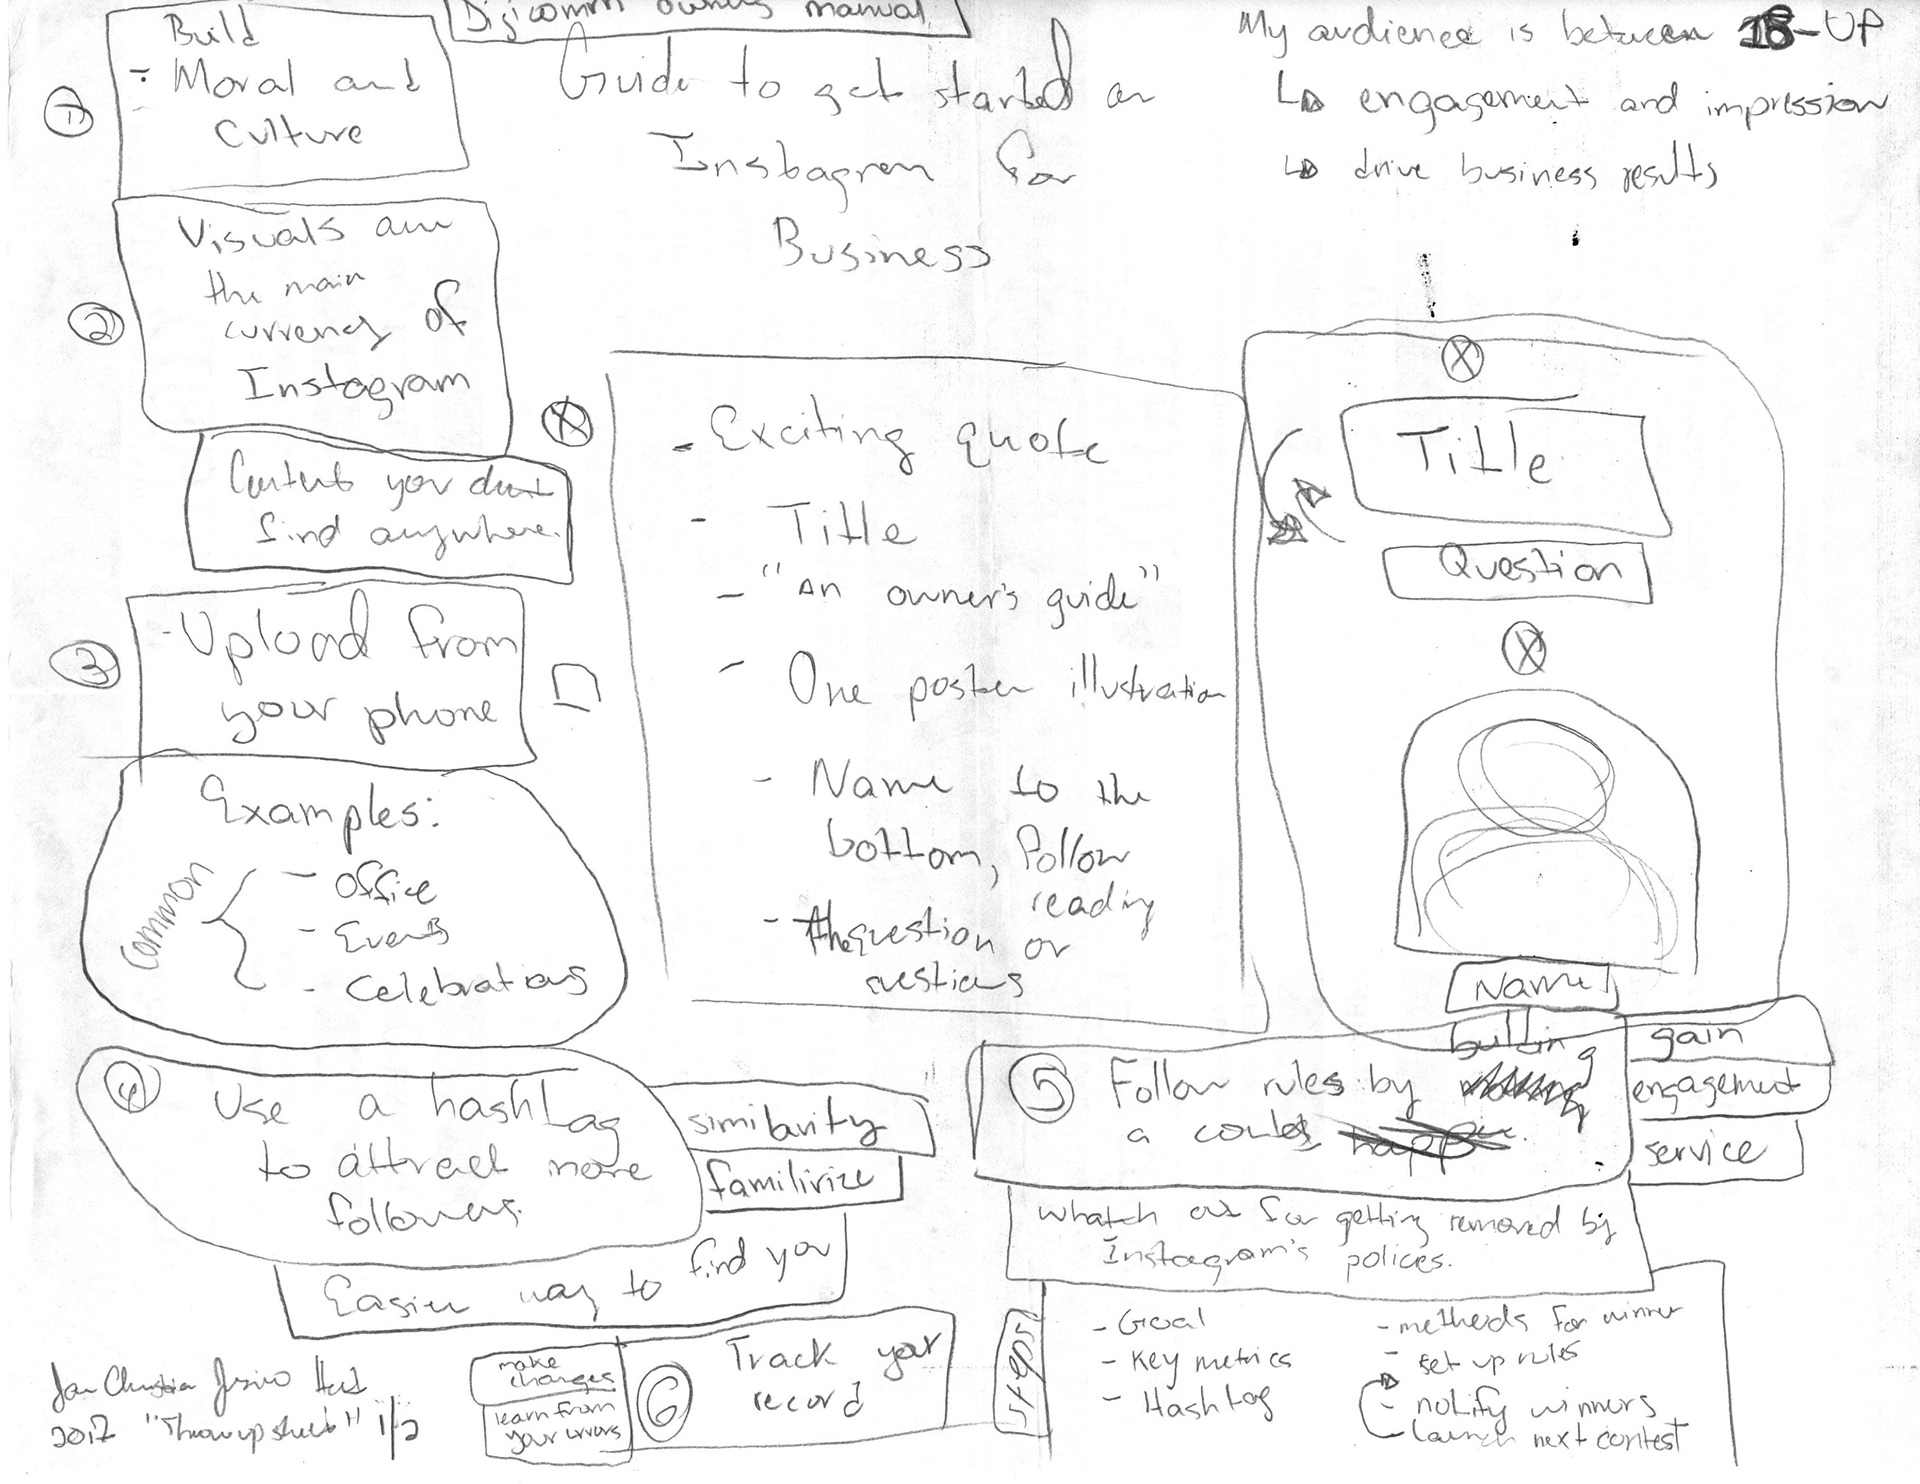 Digicomm owners manual
Guide to get started on
Instagram for
Business
My audience is between 18-UP
engagement and impression
drive business results
1
Build
- Moral and
Culture
2
Visuals are
the main
currency of
Instagram
Content you dont
find anywhere.
3
- Upload from
your phone
Examples:
Common
- Office
- Events
- Celebrations
X
- Exciting quote
- Title
- "An owner's guide"
- One poster illustration
- Name to the
bottom, follow
reading
- The question or
X
Title
Question
X
Name
4
Use a hashtag
to attract more
followers.
similarity
familirize
Easier way to find you
5
building
Follow rules by
a contest
gain
engagement
service
whatch out for getting removed by
Instagram's polices.
steps
- Goal
- Key metrics
- Hashtag
- methods for winner
- set up rules
- notify winners
- Launch next contest
6
Track your
record
make
changes
learn from
your errors
2017 1/2